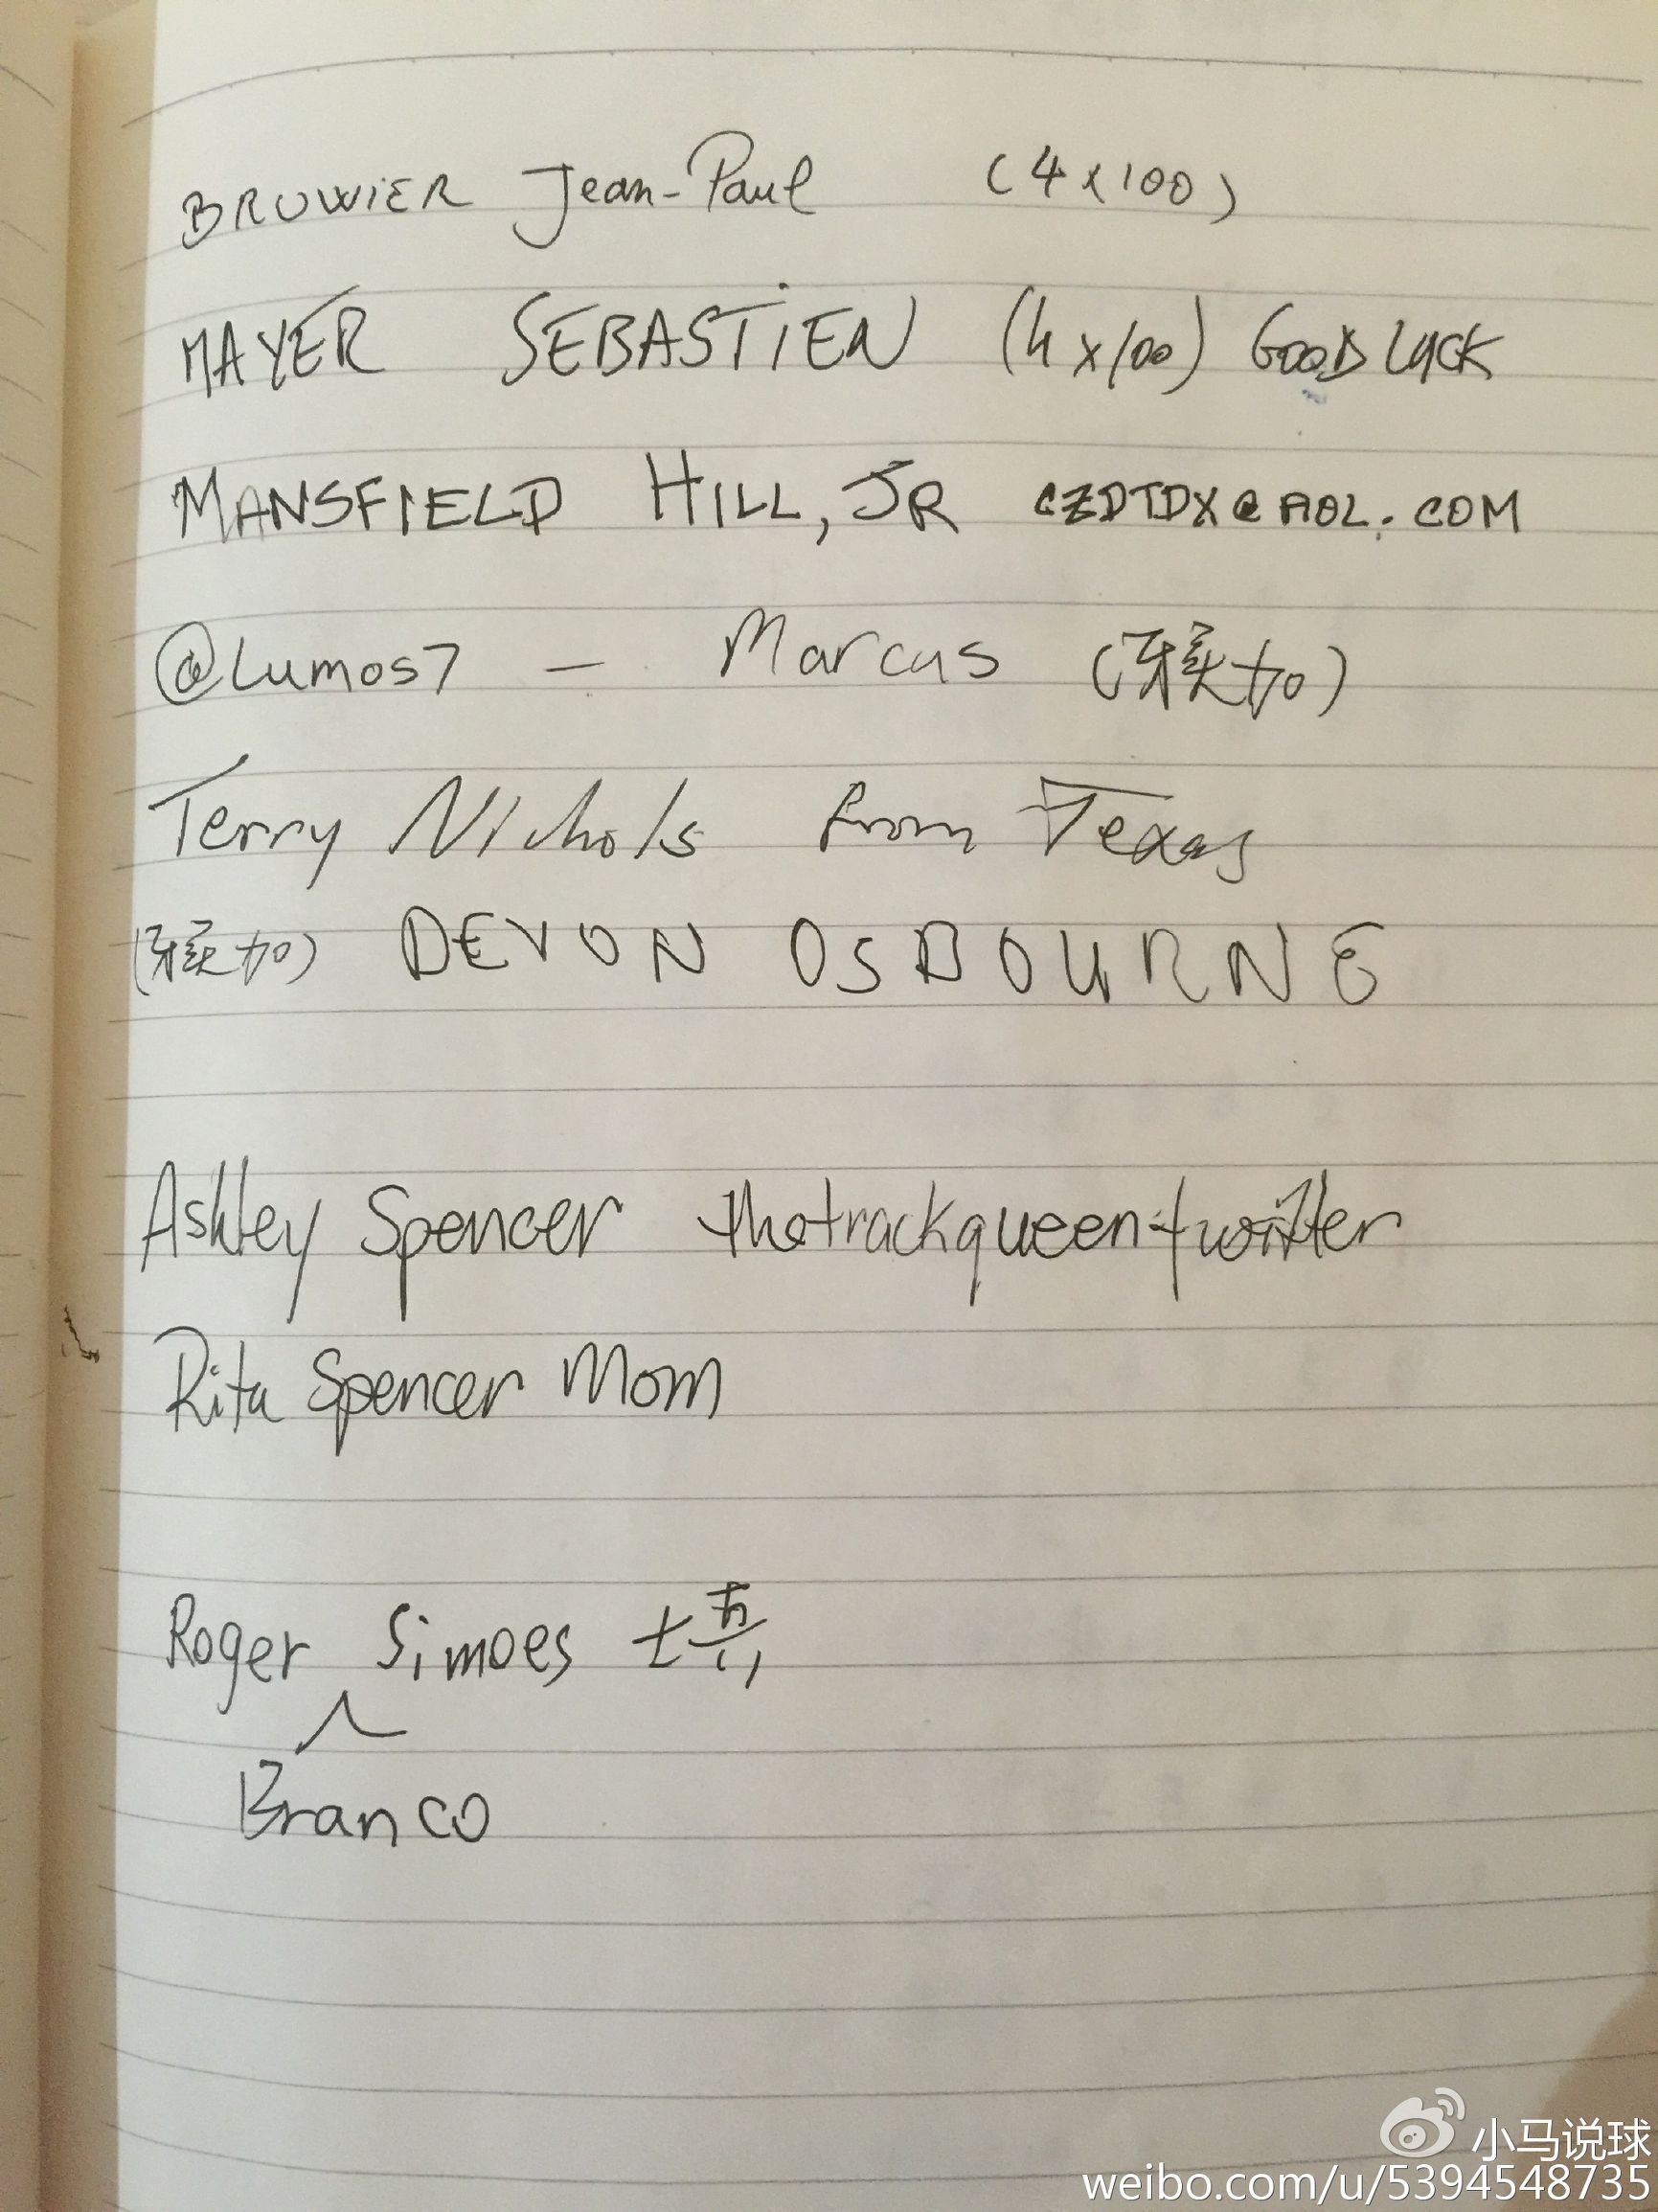 BRUWIER Jean-Paul (4x100)
MAYER SEBASTIEN (4x100) GOOD LUCK
MANSFIELD HILL, JR CZDTDX@AOL.COM
@Lumos7 - Marcus (牙买加)
Terry Nichols from Texas
(牙买加) DEVON OSBOURNE
Ashley Spencer thetrackqueen-twitter
Rita Spencer Mom
Roger Simoes
Branco
小马说球
weibo.com/u/5394548735